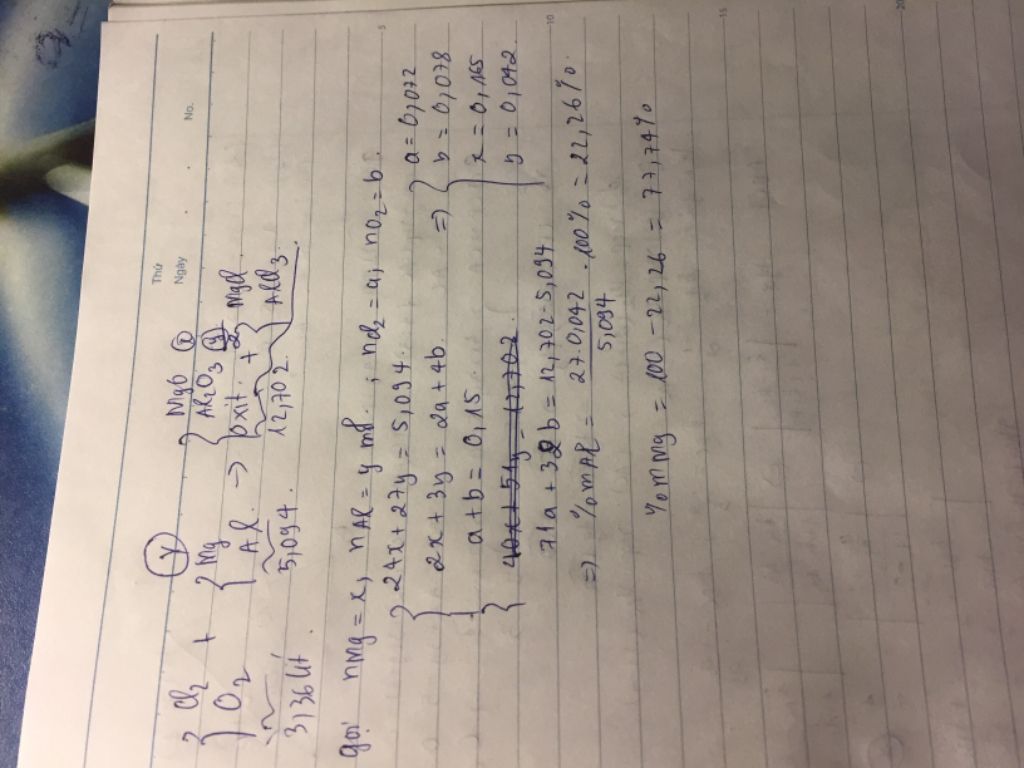 Thứ
Ngày
No.
{ Cl2
O2 + { Mg
Al → { MgO
Al2O3
oxit + { MgCl2
AlCl3
3,136 lít
5,094
12,702
gọi nMg = x, nAl = y mol ; nCl2 = a, nO2 = b
{ 24x + 27y = 5,094
2x + 3y = 2a + 4b
a + b = 0,15
=> { a = 0,072
b = 0,078
x = 0,165
y = 0,042
71a + 32b = 12,702 - 5,094
=> %mAl = 27.0,042 / 5,094 . 100% = 22,26%.
%mMg = 100 - 22,26 = 77,74%
5
10
15
20